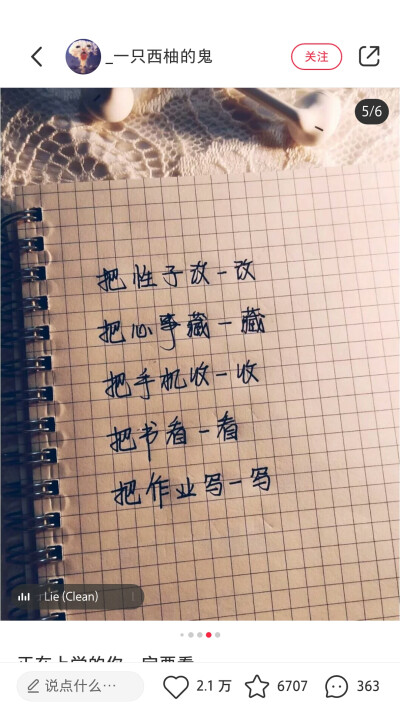 _一只西柚的鬼
关注
5/6
把性子改一改
把心事藏一藏
把手机收一收
把书看一看
把作业写一写
Lie (Clean)
正在上学的你一定要看
说点什么…
2.1 万
6707
363